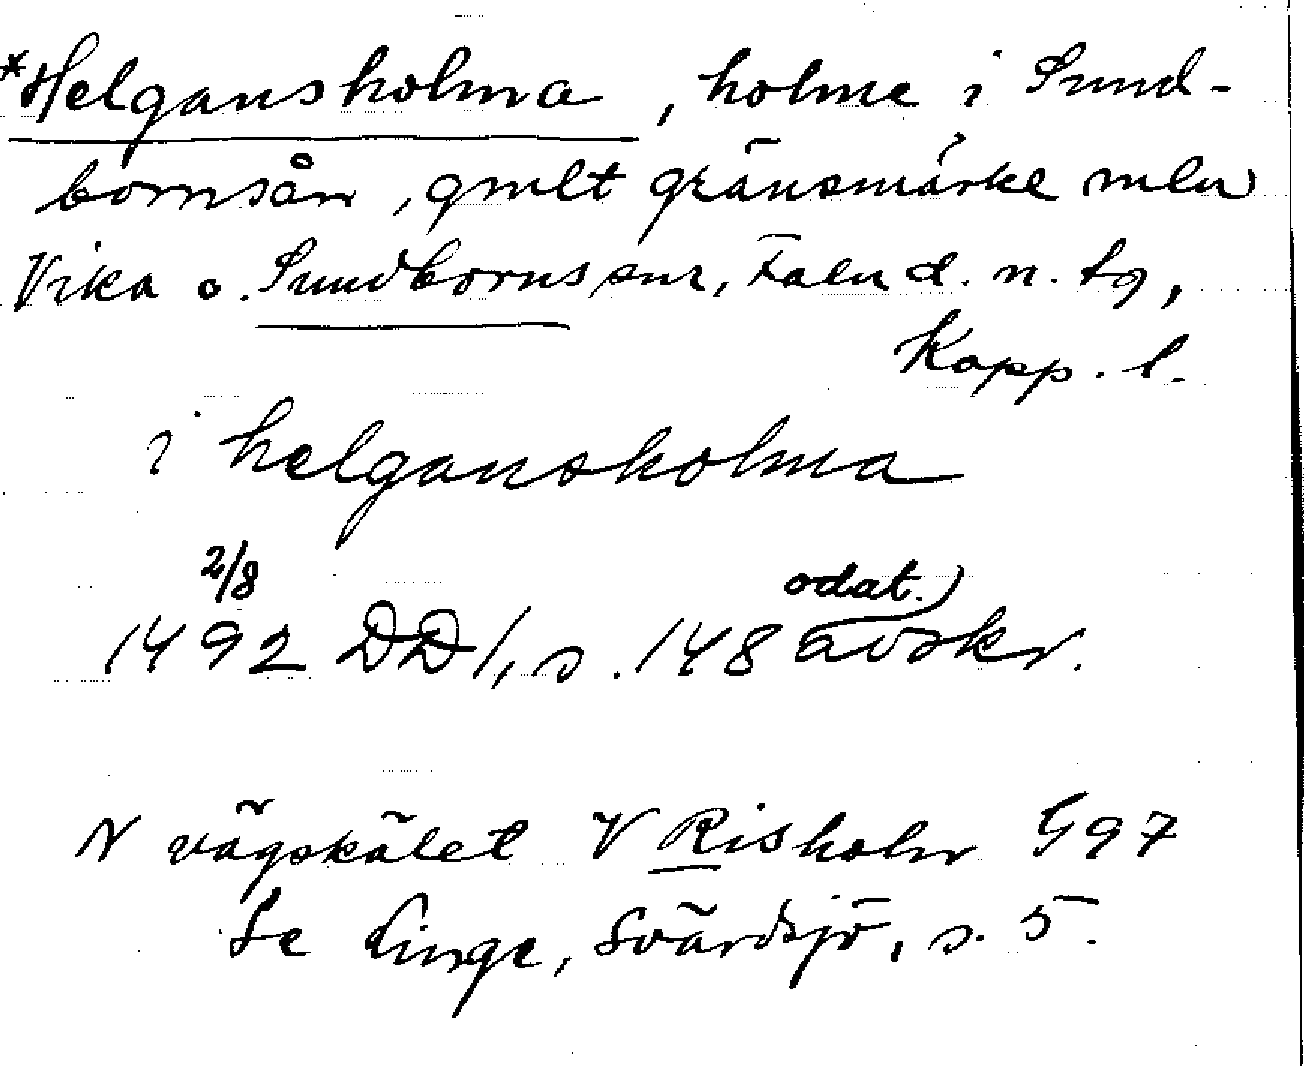 *Helgansholma, holme i Sund-
bornsån, gmlt gränsmärke mln
Vika o. Sundborns snr, Falu d. n. tg,
Kopp. l.
i helgansholma
2/8 odat.)
1492 DD 1, s. 148 avskr.
N vägskälet V Risholn G97
Se Linge, Svärdsjö, s. 5.